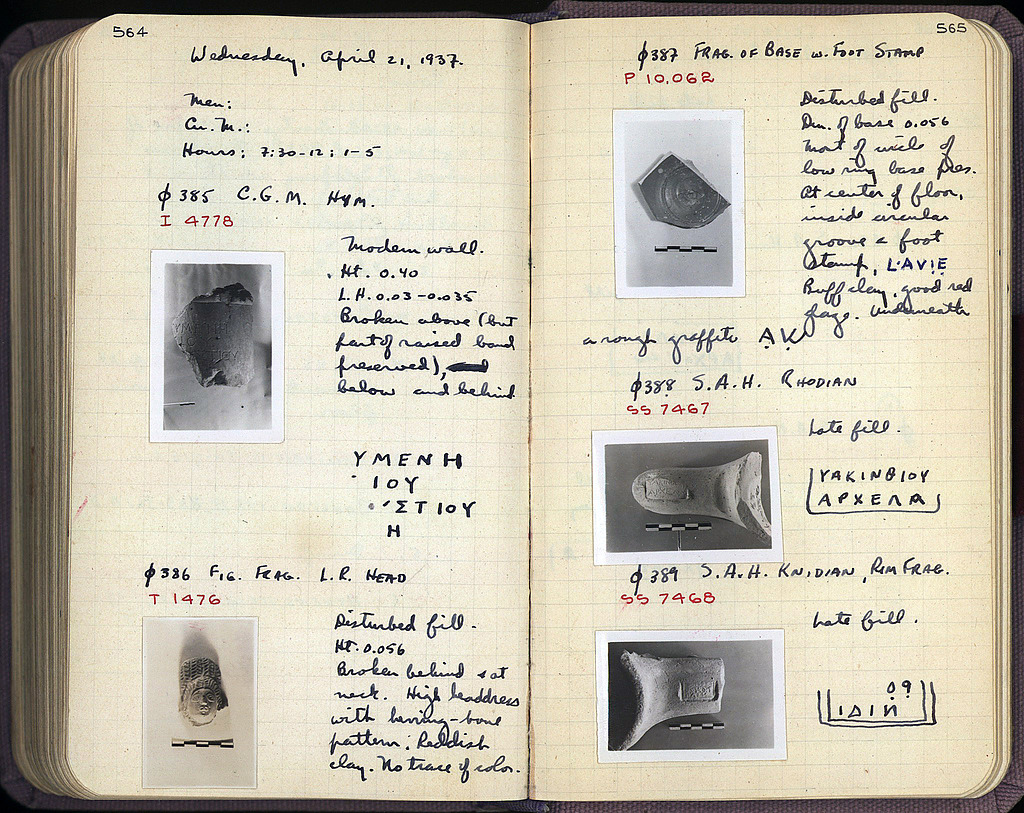 564
Wednesday, April 21, 1937.
Men:
Cu. M.:
Hours: 7:30-12; 1-5
φ385 C.G.M. HYM.
I 4778
Modern wall.
Ht. 0.40
L.H. 0.03-0.035
Broken above (but
part of raised band
preserved),
below and behind.
ΥΜΕΝΗ
ΙΟΥ
ΣΤΙΟΥ
Η
φ386 FIG. FRAG. L.R. HEAD
T 1476
Disturbed fill.
Ht. 0.056
Broken behind & at
neck. High headdress
with herring-bone
pattern; Reddish
clay. No trace of color.
565
φ387 FRAG. OF BASE W. FOOT STAMP
P 10,062
Disturbed fill.
Dm. of base 0.056
Most of circle of
low ring base pres.
At center of floor,
inside circular
groove a foot
stamp, L·AVIE
Buff clay, good red
glaze. Underneath
a rough graffito ΑΚ
φ388 S.A.H. RHODIAN
SS 7467
Late fill.
ΥΑΚΙΝΘΙΟΥ
ΑΡΧΕΛΑ
φ389 S.A.H. KNIDIAN, RIM FRAG.
SS 7468
Late fill.